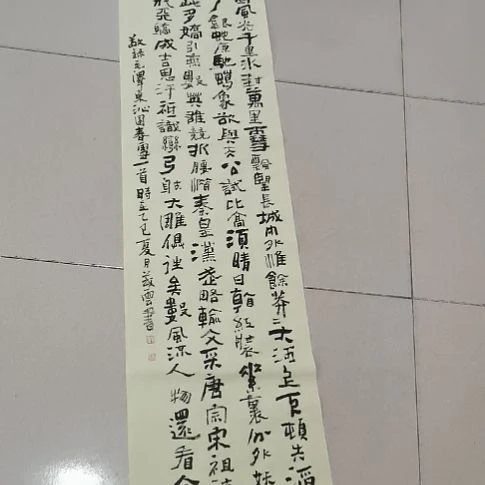 國風光千里冰封萬里雪飄望長城內外惟餘莽二大河上下頓失滔
銀蛇原馳蠟象欲與天公試比高須晴日看紅裝素裹分外妖
此多嬌引無數英雄競折腰惜秦皇漢武略輸文采唐宗宋祖
驕成吉思汗祗識彎弓射大雕俱往矣數風流人物還看今
敬錄毛澤東沁園春雪一首時在乙巳夏月雲書